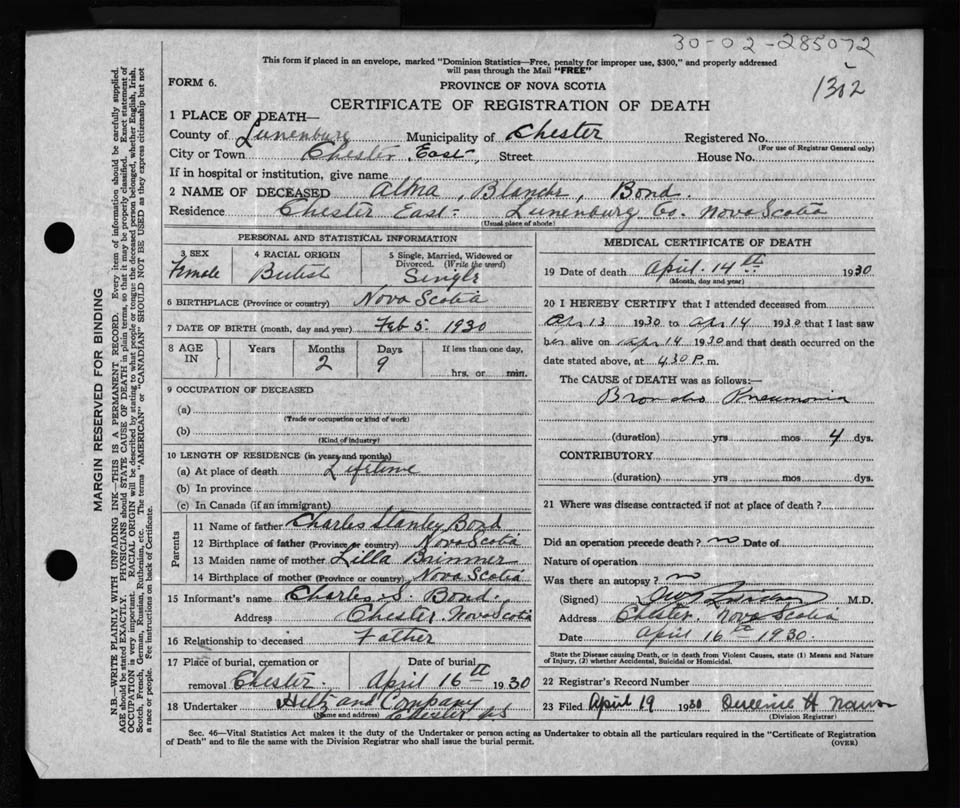 30-02-285072
1302
This form if placed in an envelope, marked "Dominion Statistics—Free, penalty for improper use, $300," and properly addressed
will pass through the Mail "FREE"
FORM 6.
PROVINCE OF NOVA SCOTIA
CERTIFICATE OF REGISTRATION OF DEATH
1 PLACE OF DEATH—
County of Lunenburg Municipality of Chester Registered No.
(For use of Registrar General only)
City or Town Chester East, Street House No.
If in hospital or institution, give name
2 NAME OF DECEASED Alma, Blanche, Bond.
Residence Chester East - Lunenburg Co. Nova Scotia
(Usual place of abode)
PERSONAL AND STATISTICAL INFORMATION
3 SEX Female
4 RACIAL ORIGIN British
5 Single, Married, Widowed or
Divorced. (Write the word)
Single
6 BIRTHPLACE (Province or country) Nova Scotia
7 DATE OF BIRTH (month, day and year) Feb 5. 1930
8 AGE IN Years Months Days If less than one day,
2 9 hrs. or min.
9 OCCUPATION OF DECEASED
(a)
(Trade or occupation or kind of work)
(b)
(Kind of industry)
10 LENGTH OF RESIDENCE (in years and months)
(a) At place of death Lifetime
(b) In province
(c) In Canada (if an immigrant)
Parents
11 Name of father Charles Stanley Bond
12 Birthplace of father (Province or country) Nova Scotia
13 Maiden name of mother Lilla Brimmer
14 Birthplace of mother (Province or country) Nova Scotia
15 Informant's name Charles S. Bond.
Address Chester. Nova Scotia
16 Relationship to deceased Father
17 Place of burial, cremation or Date of burial
removal Chester. April 16th 1930
18 Undertaker Hiltz and Company
(Name and address) Chester NS
MEDICAL CERTIFICATE OF DEATH
19 Date of death April. 14th. 1930
(Month, day and year)
20 I HEREBY CERTIFY that I attended deceased from
Apr 13 1930 to Apr 14 1930 that I last saw
her alive on Apr 14 1930 and that death occurred on the
date stated above, at 4.30 P. m.
The CAUSE of DEATH was as follows:—
Broncho Pneumonia
(duration) yrs mos 4 dys.
CONTRIBUTORY
(duration) yrs mos dys.
21 Where was disease contracted if not at place of death?
Did an operation precede death? no Date of
Nature of operation
Was there an autopsy? no
(Signed) M.D.
Address Chester. Nova Scotia
Date April 16th 1930.
State the Disease causing Death, or in death from Violent Causes, state (1) Means and Nature
of Injury, (2) whether Accidental, Suicidal or Homicidal.
22 Registrar's Record Number
23 Filed April 19 1930 H
(Division Registrar)
Sec. 46—Vital Statistics Act makes it the duty of the Undertaker or person acting as Undertaker to obtain all the particulars required in the "Certificate of Registration
of Death" and to file the same with the Division Registrar who shall issue the burial permit.
(OVER)
MARGIN RESERVED FOR BINDING
N.B.—WRITE PLAINLY WITH UNFADING INK—THIS IS A PERMANENT RECORD. Every item of information should be carefully supplied.
AGE should be stated EXACTLY. PHYSICIANS should STATE CAUSE OF DEATH in plain terms, so that it may be properly classified. Exact statement of
OCCUPATION is very important. RACIAL ORIGIN will be described by stating to what people or tongue the deceased person belonged, whether English, Irish,
Scotch, French, German, Russian, Ruthenian, etc. The terms "AMERICAN" or "CANADIAN" SHOULD NOT BE USED as they express citizenship but not
a race or people. See instructions on back of Certificate.